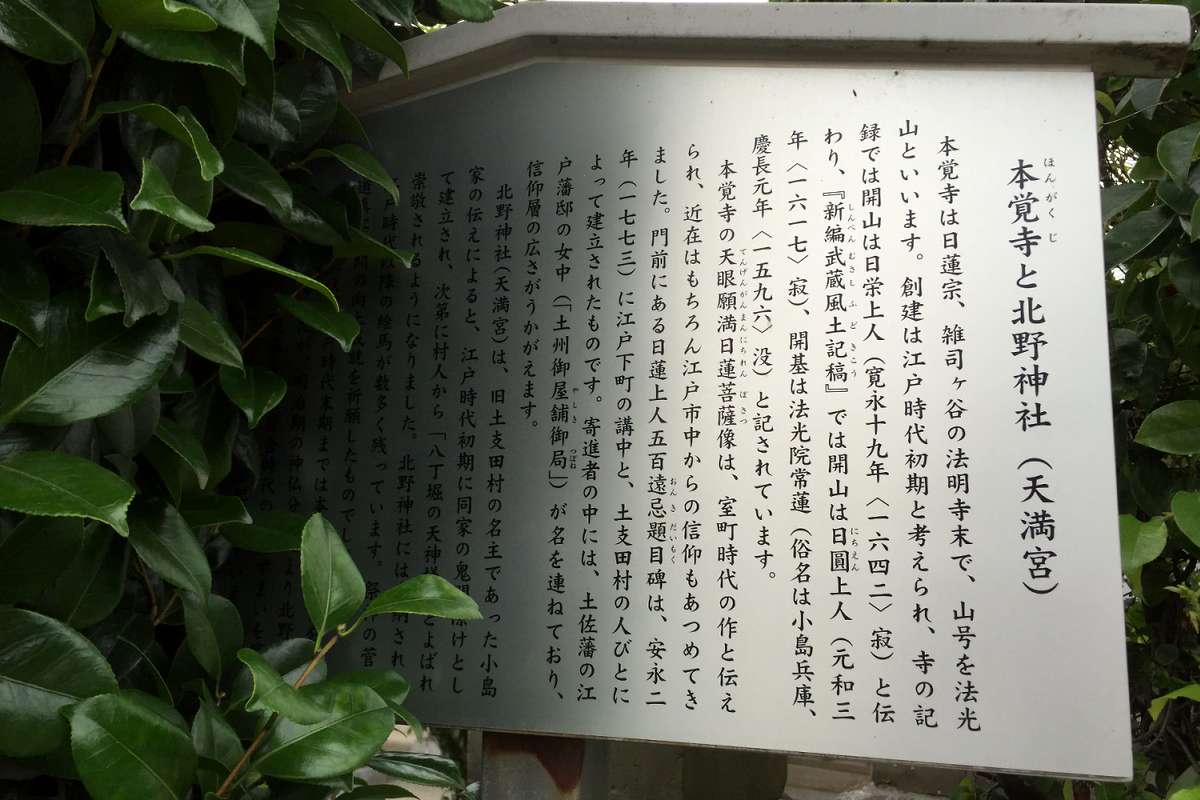 本覚寺と北野神社（天満宮）
ほんがくじ
本覚寺は日蓮宗、雑司ヶ谷の法明寺末で、山号を法光
山といいます。創建は江戸時代初期と考えられ、寺の記
録では開山は日栄上人（寛永十九年〈一六四二〉寂）と伝
わり、『新編武蔵風土記稿』では開山は日圓上人（元和三
しんぺんむさしふどきこう
にちえん
年〈一六一七〉寂）、開基は法光院常蓮（俗名は小島兵庫、
慶長元年〈一五九六〉没）と記されています。
本覚寺の天眼願満日蓮菩薩像は、室町時代の作と伝え
てんげんがんまんにちれんぼさつ
られ、近在はもちろん江戸市中からの信仰もあつめてき
ました。門前にある日蓮上人五百遠忌題目碑は、安永二
おんきだいもく
年（一七七三）に江戸下町の講中と、土支田村の人びとに
よって建立されたものです。寄進者の中には、土佐藩の江
戸藩邸の女中（「土州御屋舗御局」）が名を連ねており、
やしき
つぼね
信仰層の広さがうかがえます。
北野神社（天満宮）は、旧土支田村の名主であった小島
家の伝えによると、江戸時代初期に同家の鬼門除けとし
て建立され、次第に村人から「八丁堀の天神様」とよばれ
崇敬されるようになりました。北野神社には
され
戸時代以降の絵馬が数多く残っています。
の菅
を祈願したものでし
時代末期までは本
期の神仏分
より北野